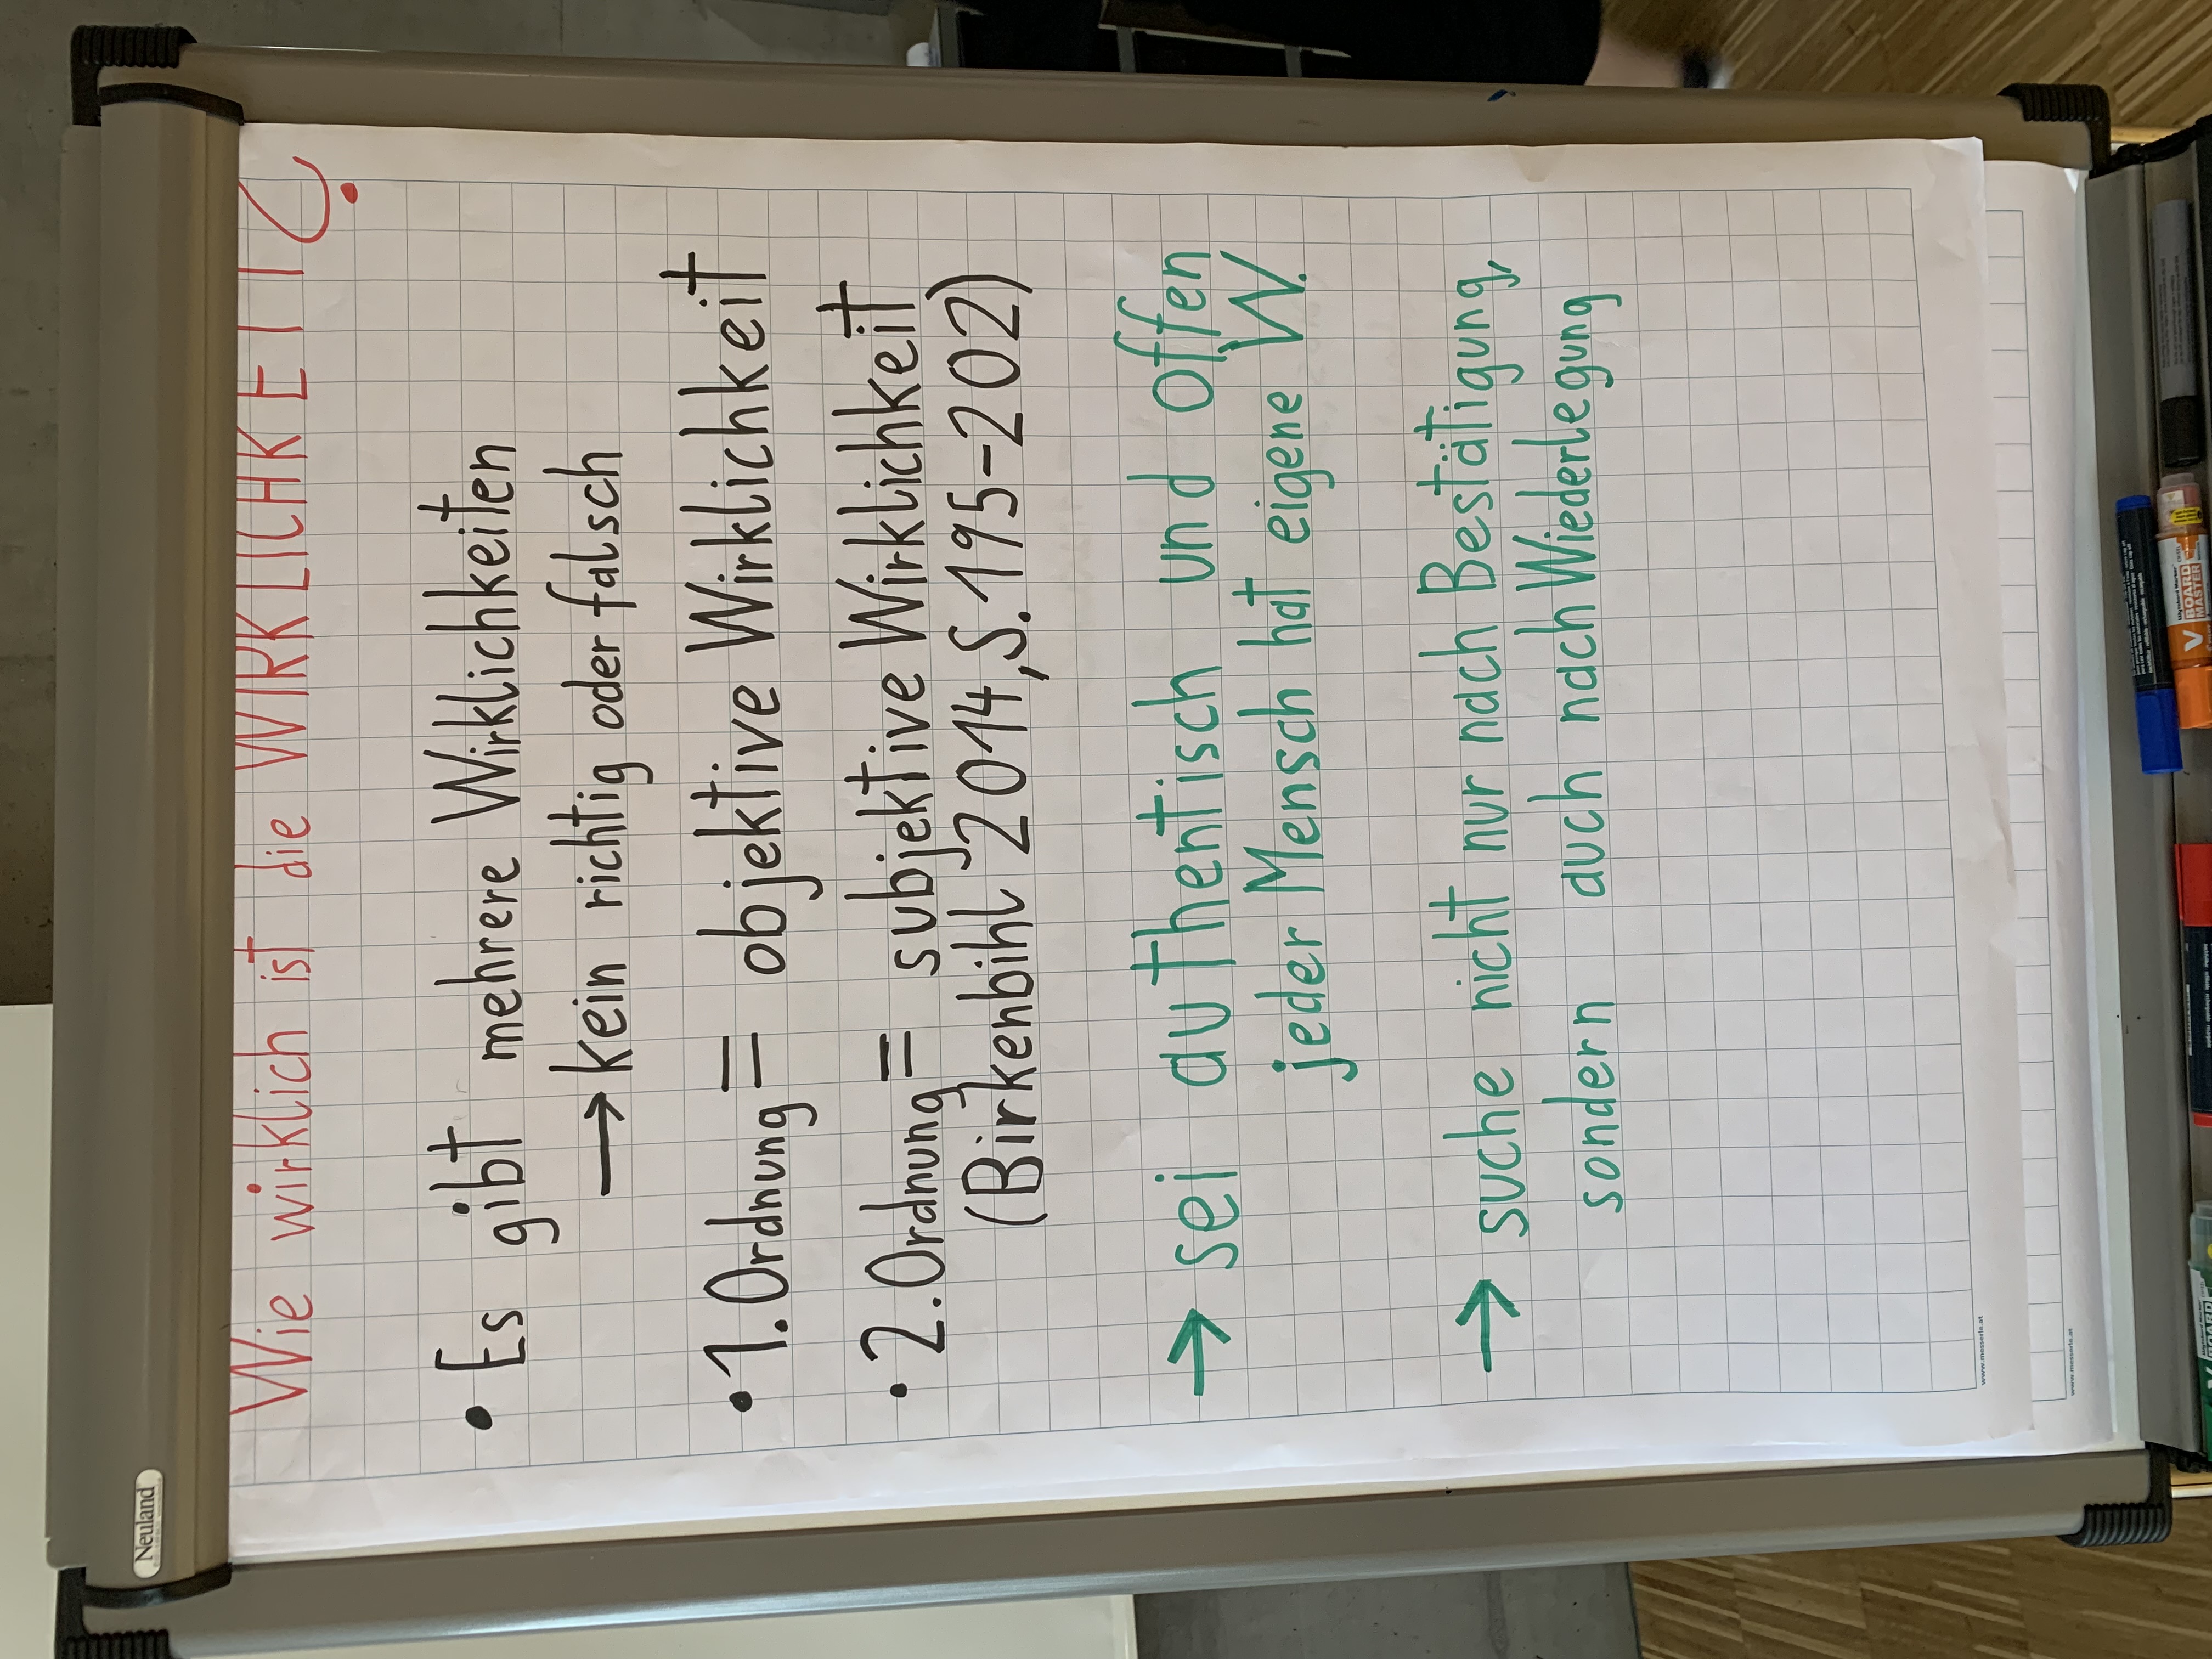 Neuland
Wie wirklich ist die WIRKLICHKEIT?
• Es gibt mehrere Wirklichkeiten
→ kein richtig oder falsch
• 1. Ordnung = objektive Wirklichkeit
• 2. Ordnung = subjektive Wirklichkeit
(Birkenbihl 2014, S. 195-202)
→ sei authentisch und offen
jeder Mensch hat eigene W.
→ suche nicht nur nach Bestätigung,
sondern auch nach Wiederlegung
www.messerle.at
www.messerle.at
V BOARD MASTER